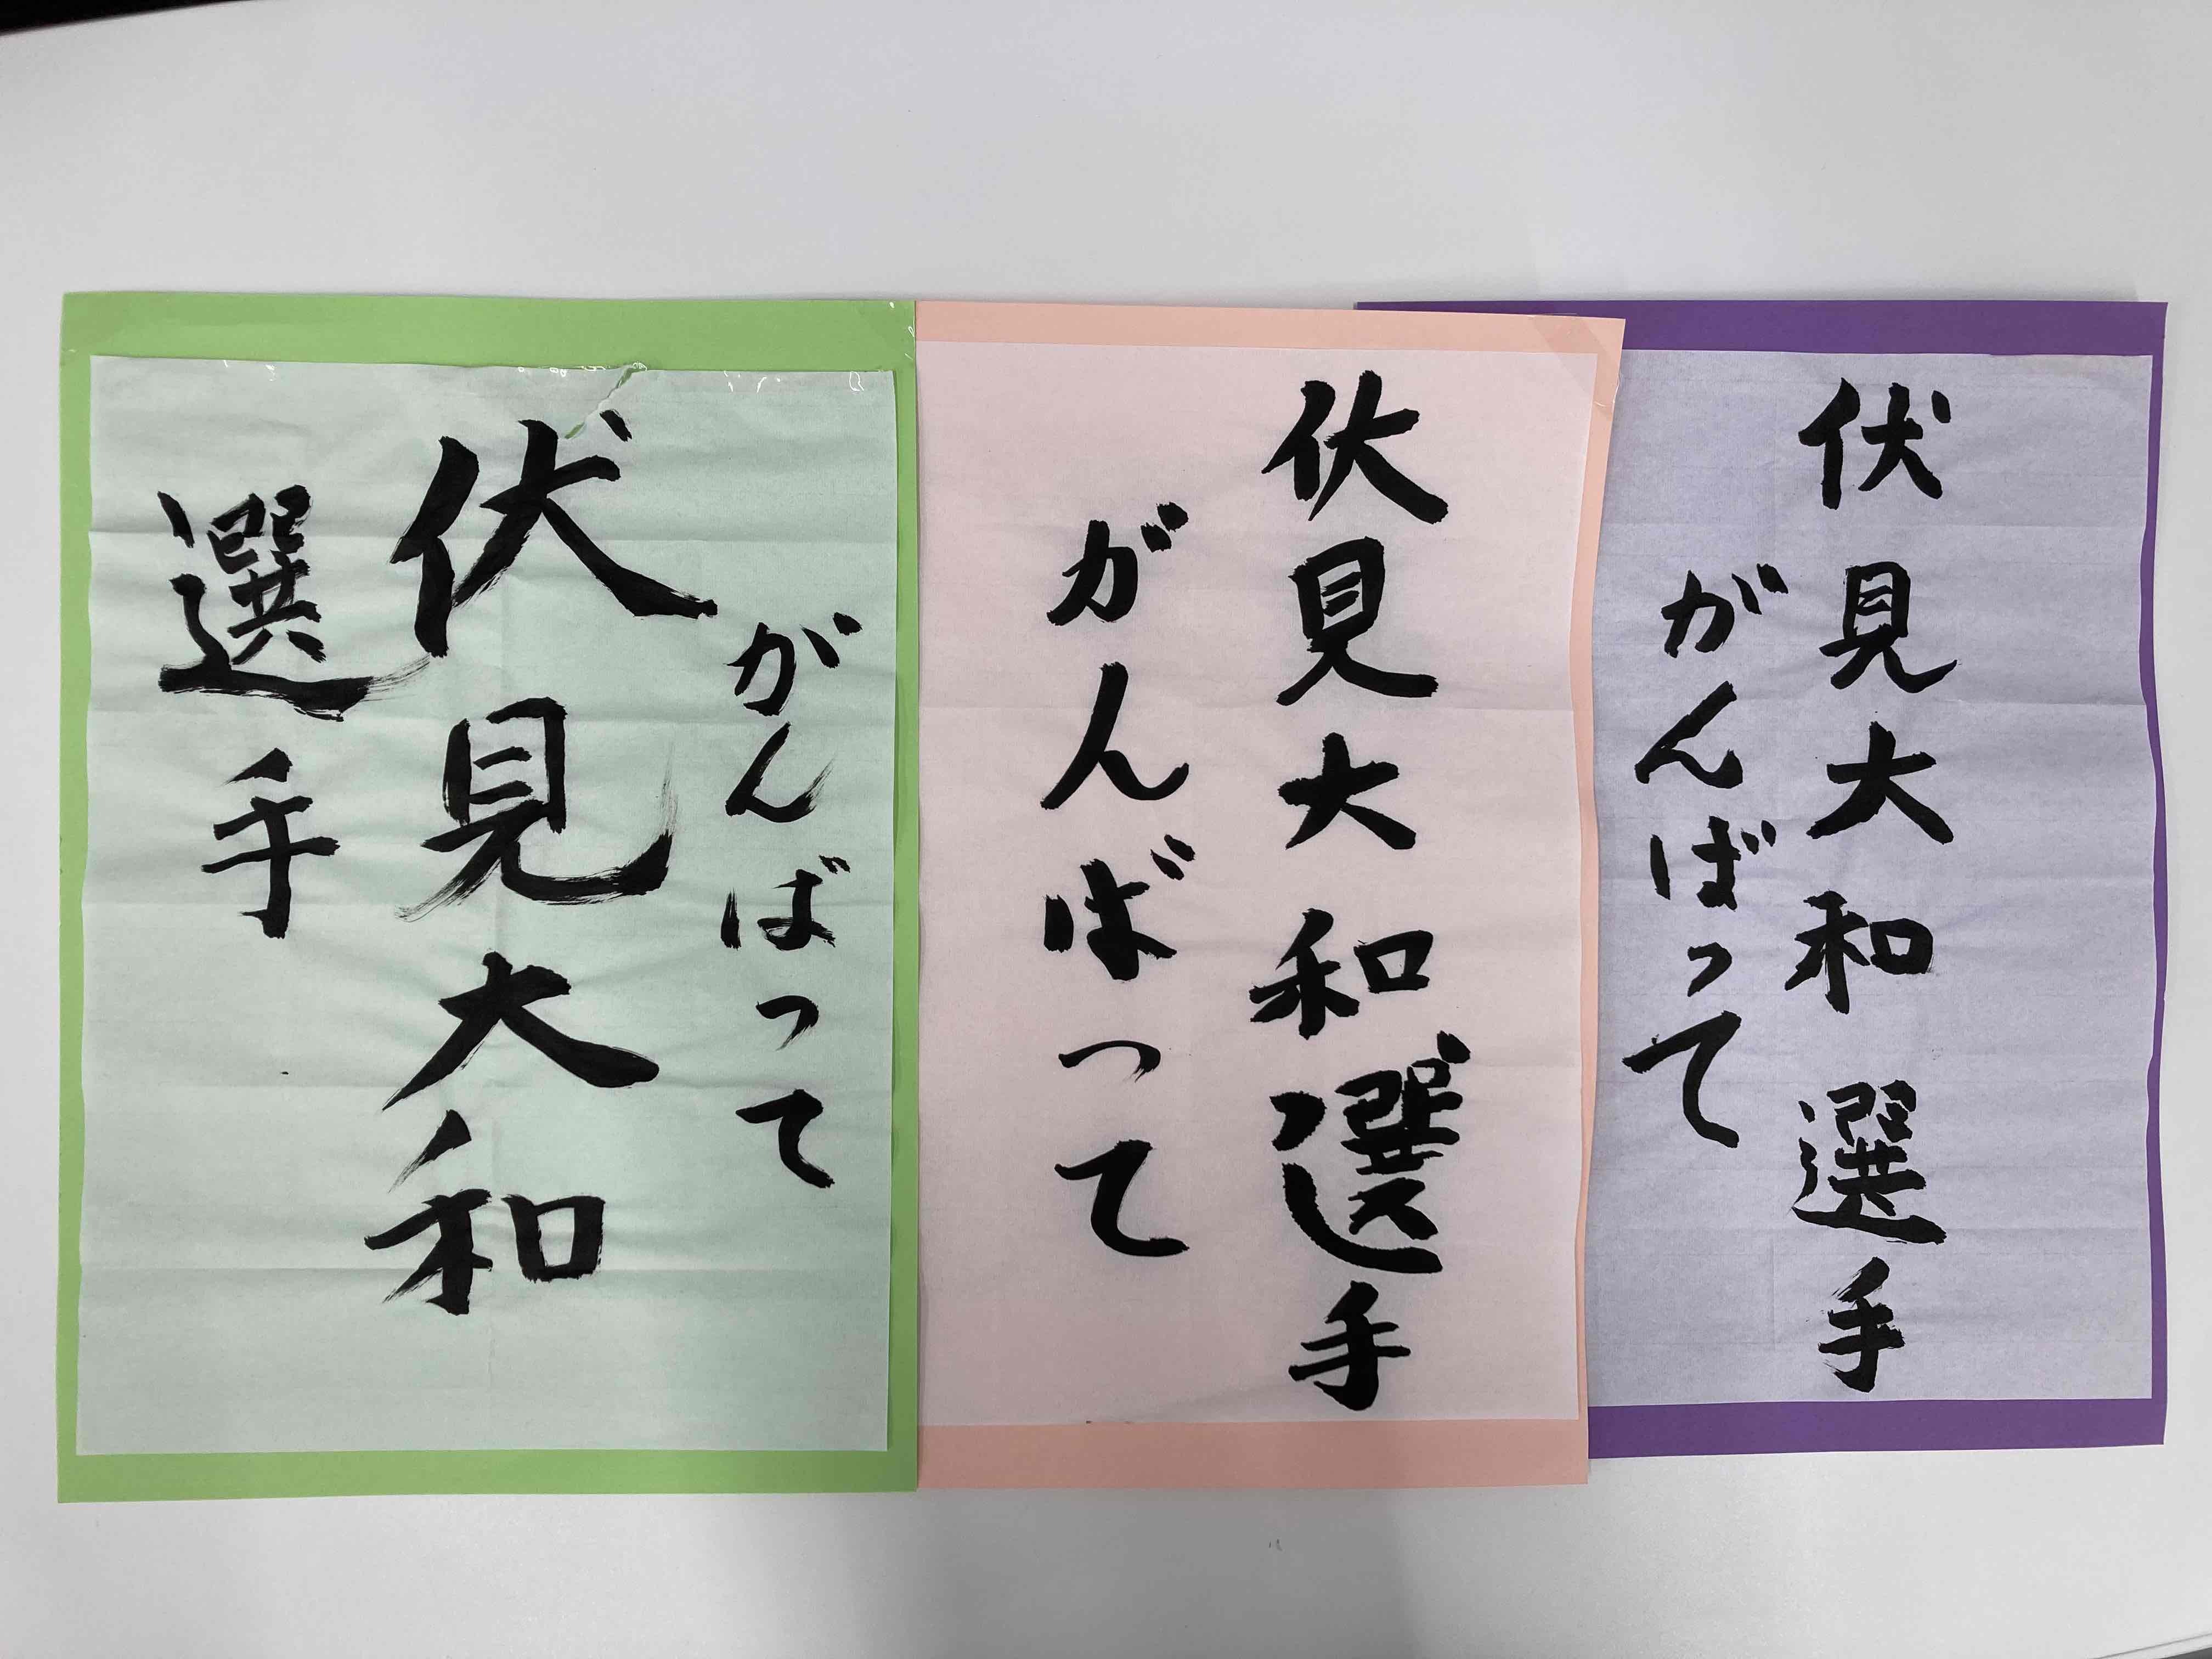 がんばって
伏見大和
選手
伏見大和選手
がんばって
伏見大和選手
がんばって